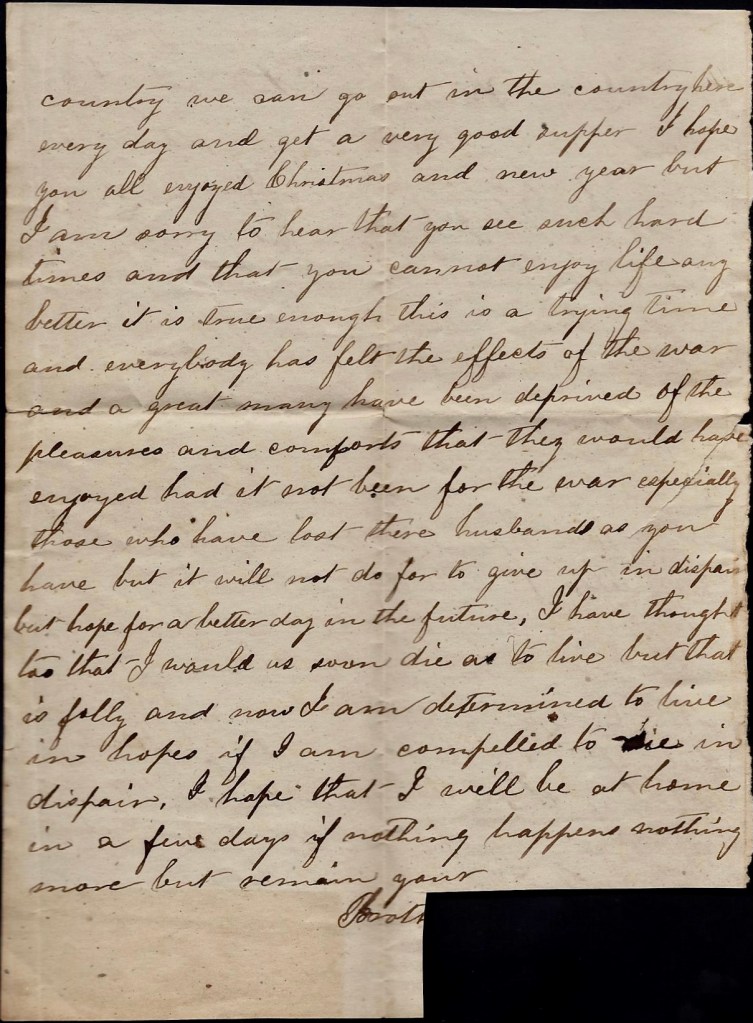 country we can go out in the country here
every day and get a very good supper I hope
you all enjoyed Christmas and new year but
I am sorry to hear that you see such hard
times and that you cannot enjoy life any
better it is true enough this is a trying time
and everybody has felt the effects of the war
and a great many have been deprived of the
pleasures and comforts that they would have
enjoyed had it not been for the war especially
those who have lost there husbands as you
have but it will not do for to give up in dispair
but hope for a better day in the future, I have thought
too that I would as soon die as to live but that
is folly and now I am determined to live
in hopes if I am compelled to die in
dispair, I hope that I will be at home
in a few days if nothing happens nothing
more but remain your
Broth